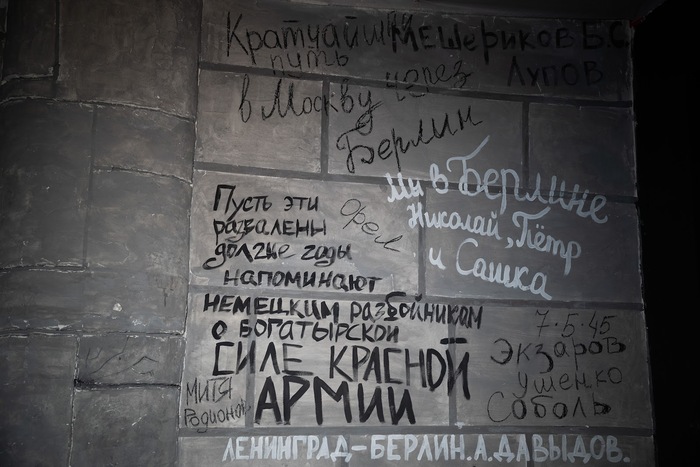 Кратчайший
путь
в Москву через
Берлин
Мещериков Б.С.
Лупов
Ми в Берлине
Николай, Пётр
и Сашка
Пусть эти
развалены
долгие годы
напоминают
немецким разбойникам
о богатырской
СИЛЕ КРАСНОЙ
АРМИИ
Орел
7-5-45
Экзаров
ушенко
Соболь
МИТЯ
Родионов
ЛЕНИНГРАД-БЕРЛИН.А.ДАВЫДОВ.